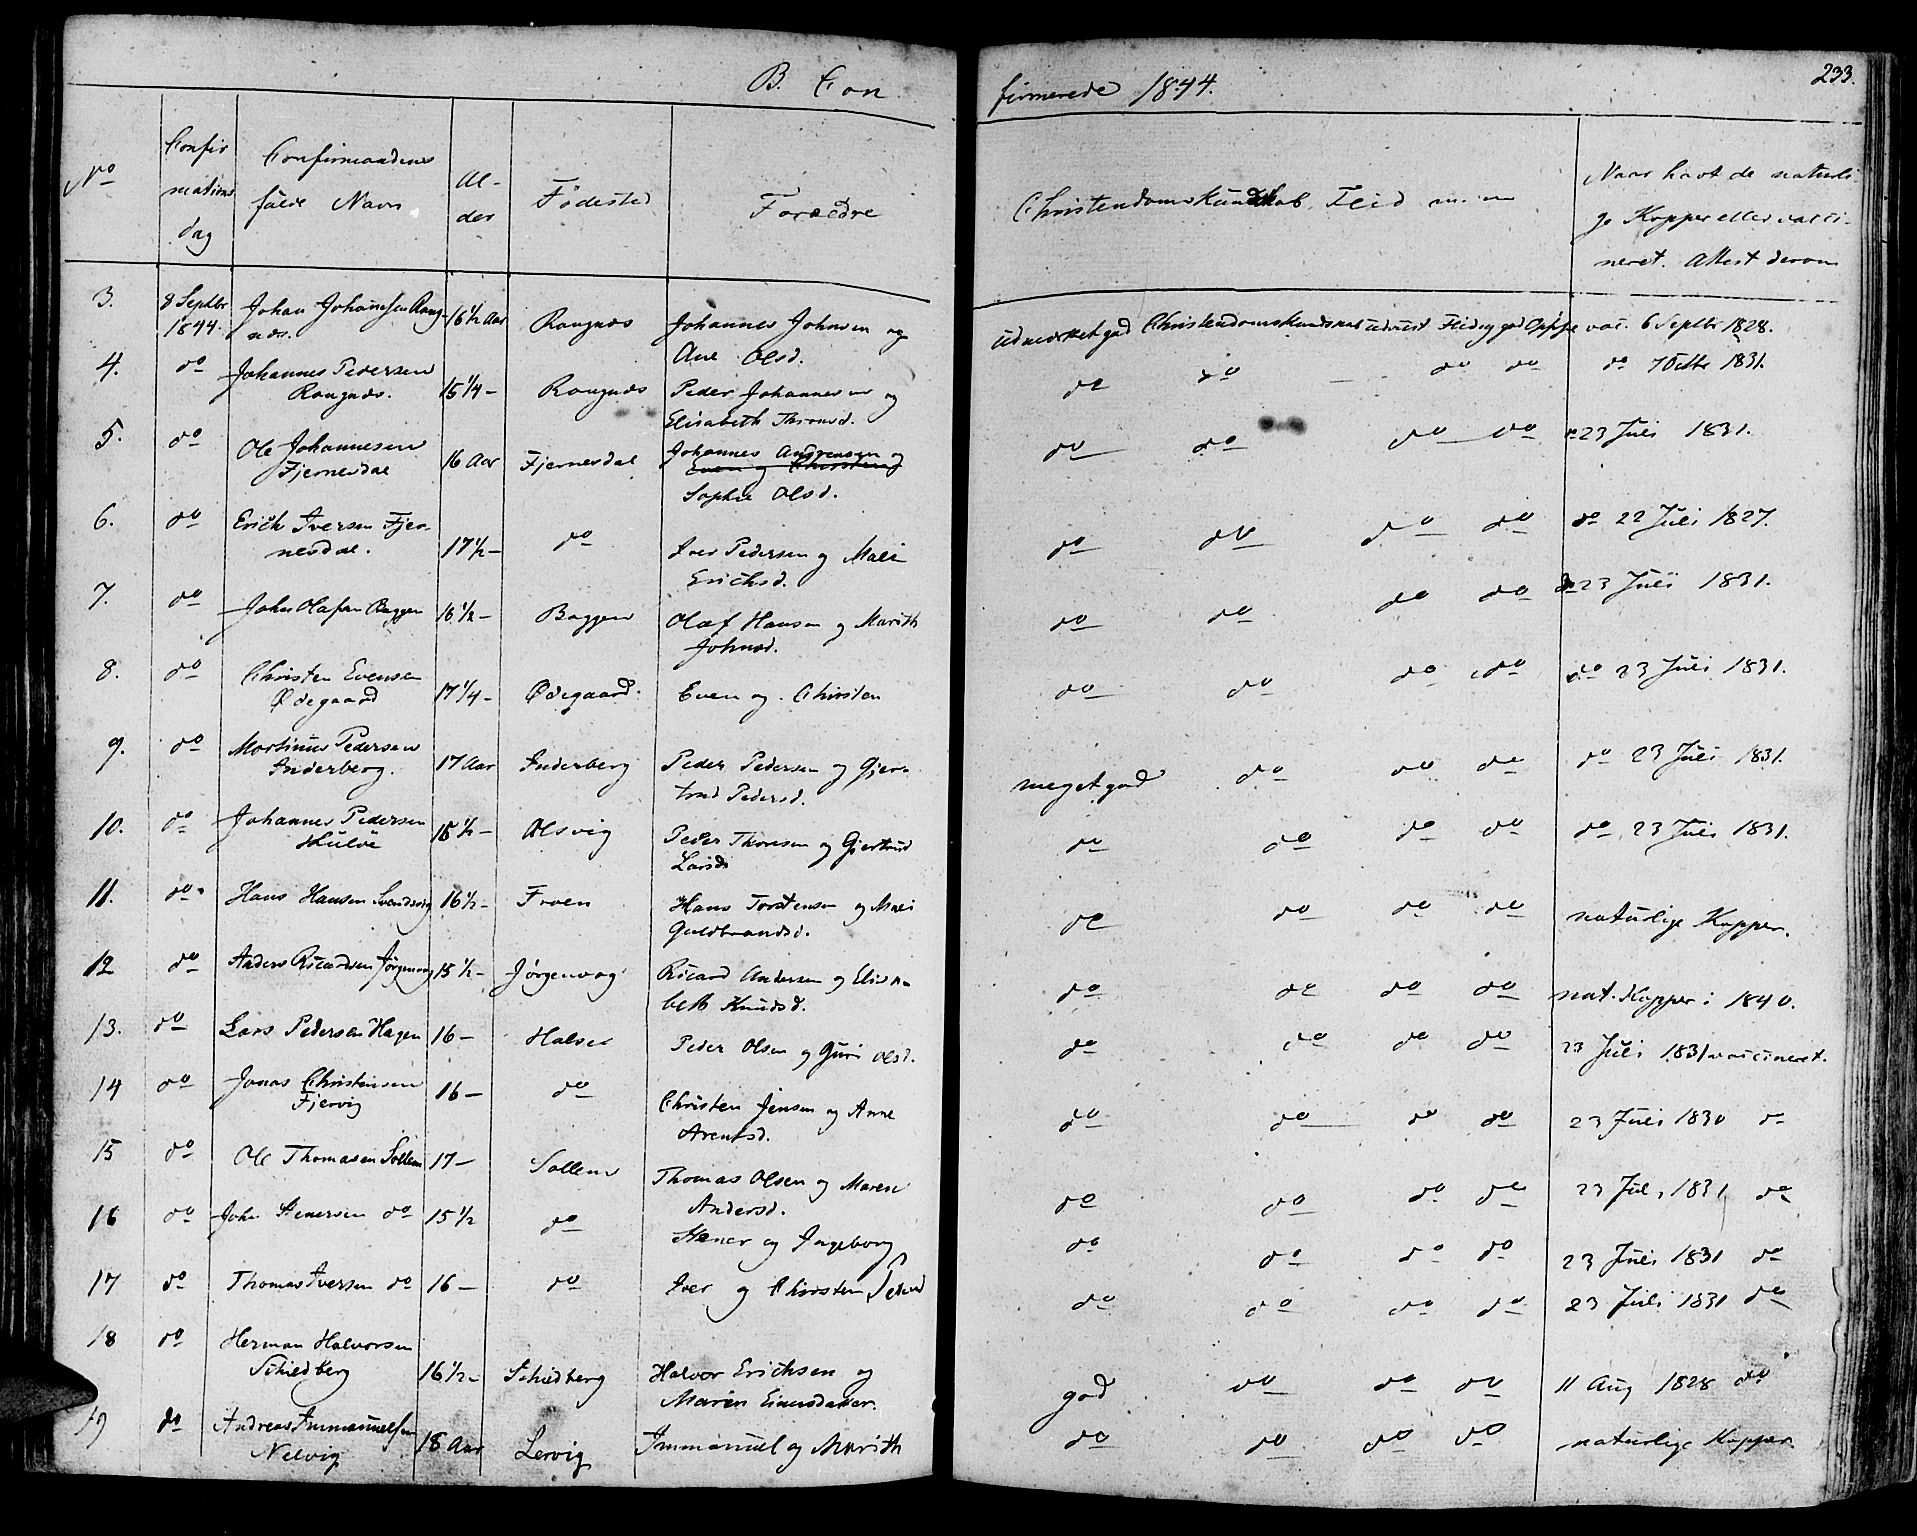 B. Con
firmerede 1844.
233.
No
Confir
mations
dag
Confirmandens
fulde Navn
Al-
der
Fødested
Forældre
Christendomskundskab, Flid m. m
Naar havt de naturli-
ge Kopper eller vacci-
neret. Attest derom
3. 8 Septbr 1844. Johan Johannessen Rang-
nds. 16 1/2 Aar Rangnds Johannes Johnsen og
Ane Olsd. udmærket god Christendomskundskab udviist Flid og god Opf. vac. 6 Septbr 1828.
4. do Johannes Pedersen
Rangnds. 15 1/4 - Rangnds Peder Johannesen og
Elisabeth Thronsd. do do do do do 7 Octbr 1831.
5. do Ole Johannesen
Fjernesdal 16 Aar Fjernesdal Johannes Andreasen og
Even og Christen
Sophie Olsd. do do do do 23 Juli 1831.
6. do Erich Iversen Fjer-
nesdal. 17 1/2 - do Iver Pedersen og Mali
Erichsd. do do do do do 22 Juli 1827.
7. do John Olafsen Baggen 16 1/2 - Baggen Olaf Hansen og Marith
Johnsd. do do do do do 23 Juli 1831.
8. do Christen Evensen
Ødegaard 17 1/4 - Ødegaard. Even og Christen do do do do do 23 Juli 1831.
9. do Martinus Pedersen
Inderberg. 17 Aar Inderberg Peder Pedersen og Gjer-
trud Pedersd. meget god do do do do 23 Juli 1831.
10. do Johannes Pedersen
15 1/2 - Alsvig Peder Thoresen og Gjertrud
Larsd. do do do do do 23 Juli 1831.
11. do Hans Hansen Svendsvig 16 1/2 - Froen Hans Torstensen og Mari
Guldbrandsd. do do do do naturlige Kopper.
12 do Anders Ricardsen Jørgenvog 15 1/2 - Jørgenvog Ricard Andersen og Elisa-
beth Knudsd. do do do do nat. Kopper i 1840.
13. do Lars Pedersen Hagen 16 - Halset Peder Olsen og Guri Olsd. do do do do 23 Juli 1831 vaccineret.
14 do Jonas Christensen
Fjervig 16 - do Christen Jensen og Anne
Arentsd. do do do do 23 Juli 1830 do
15 do Ole Thomasen Sollem 17 - Sollem Thomas Olsen og Maren
Andersd. do do do do 23 Juli 1831 do
16 do John Stenersen do 15 1/2 do Stener og Ingeborg do do do do 23 Juli 1831 do
17 do Thomas Iversen do 16 - do Iver og Christen do do do do 23 Juli 1831 do
18 do Herman Halvorsen
Schiedberg 16 1/2 - Schiedberg Halvor Erichsen og
Maren Einersdatter. god do do do 11 Aug 1828 do
19 do Andreas Immanuelsen
Nelvig 18 Aar Lervig Immanuel og Marith do do do do naturlige Kopper